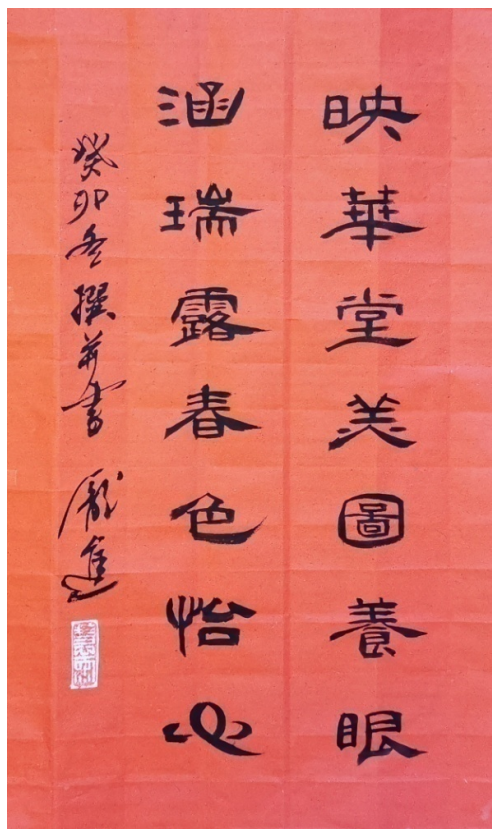 映華堂美圖養眼
涵瑞露春色怡心
癸卯冬撰並書 龐進